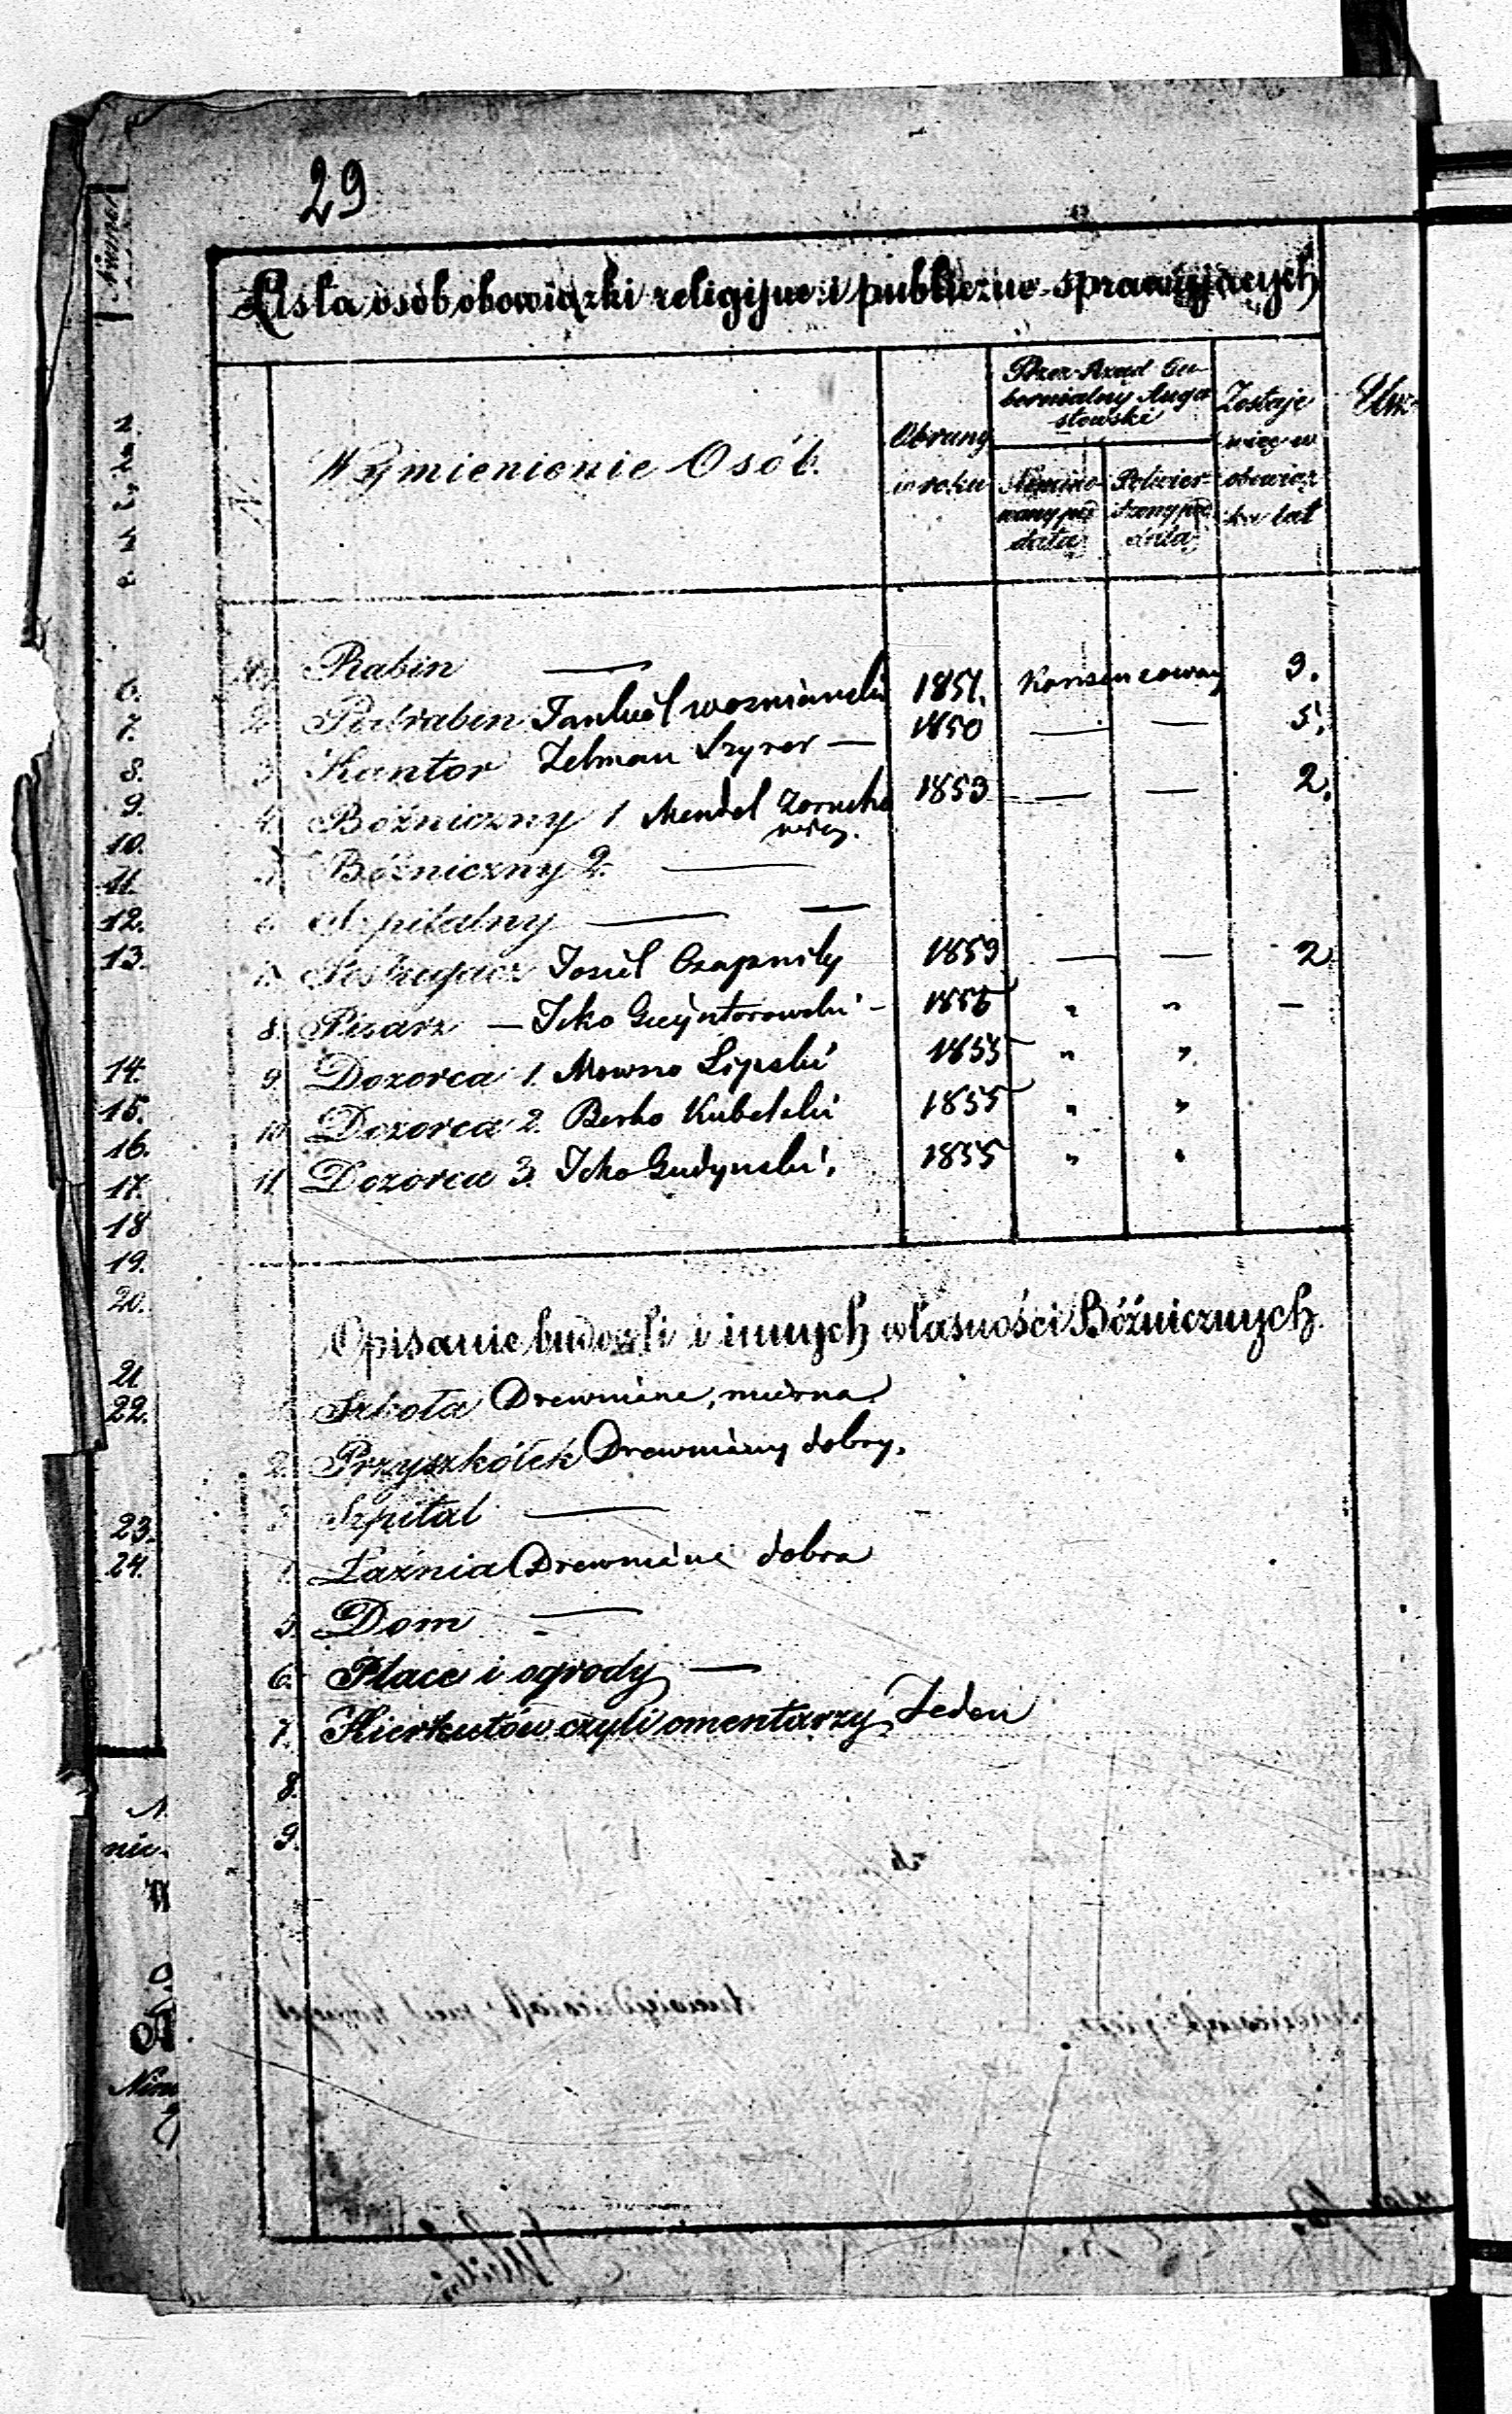 29
Lista osób obowiązki religijne i publiczne sprawujących
N. Wymienienie Osób.
Obrany w roku
Przez Rząd Gubernialny Augustowski
Nominowany pod datą
Potwierdzony pod datą
Zostaje więc w obowiązku lat
1. Rabin —
2. Podrabin 1851. Konsencowany 3.
3. Kantor Zelman Szyrer — 1850 — — 5.
4. Bóżniczny 1. Mendel 1853 — — 2.
5. Bóżniczny 2. —
6. Szpitalny — —
7. Josiel 1853 — — 2
8. Pisarz — Icko 1855 " " —
9. Dozorca 1. Mowsza Lipski 1855 " "
10. Dozorca 2. Berko Kubelski 1855 " "
11. Dozorca 3. Icko Gudynski. 1855 " "
Opisanie budowli i innych własności Bóżnicznych.
1. Szkoła Drewniana, mierna
2. Przyszkółek Drewniany dobry.
3. Szpital —
4. Łaźnia Drewniana dobra
5. Dom —
6. Place i ogrody —
7. Kierkutów czyli cmentarzy Jeden
8.
9.
6.
7.
8.
9.
10.
11.
12.
13.
14.
15.
16.
17.
18
19.
20.
21
22.
23.
24.